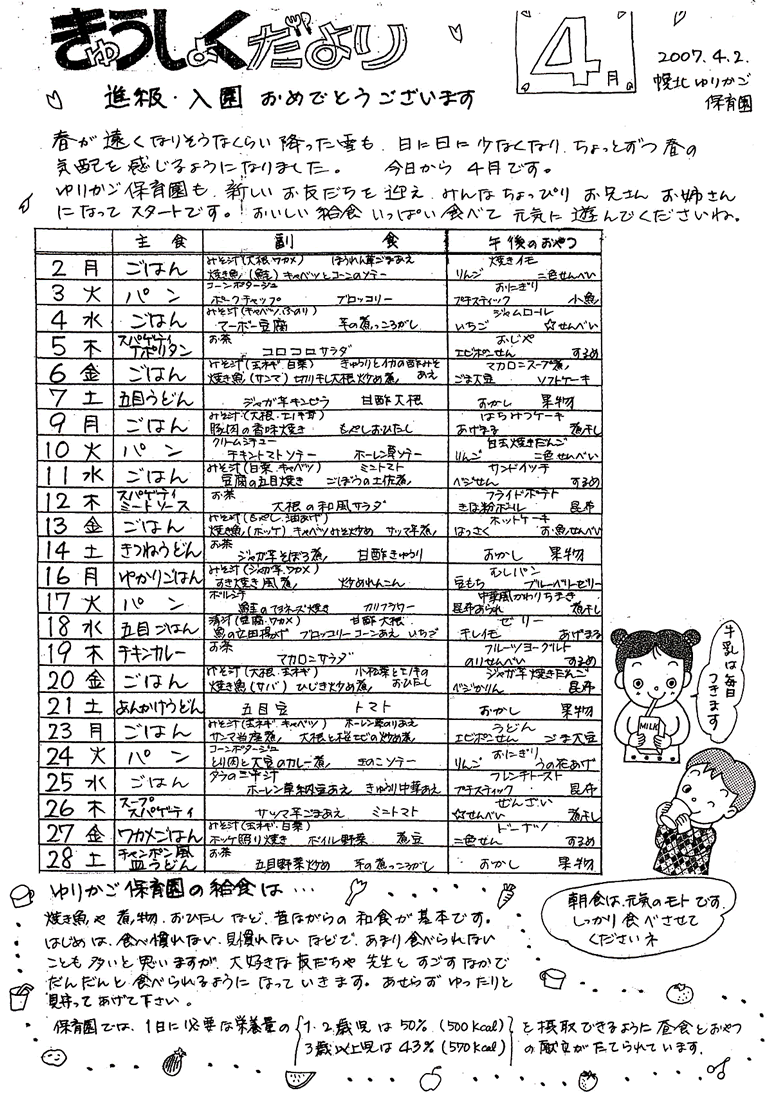 きゅうしょくだより
4月
2007.4.2.
幌北ゆりかご
保育園
進級・入園 おめでとうございます
春が遠くなりそうなくらい降った雪も、日に日に少なくなり、ちょっとずつ春の
気配を感じるようになりました。 今日から 4月です。
ゆりかご保育園も、新しいお友だちを迎え、みんなちょっぴり お兄さん お姉さん
になって スタートです。! おいしい給食 いっぱい食べて 元気に 遊んでくださいね。
主食 副食 午後のおやつ
2 月 ごはん みそ汁(大根、ワカメ) ほうれん草ごまあえ 焼きイモ
焼き魚(鮭) キャベツとコーンのソテー りんご 二色せんべい
3 火 パン コーンポタージュ おにぎり
ポークチャップ ブロッコリー プチスティック 小魚
4 水 ごはん みそ汁(キャベツ、ふのり) ジャムロール
マーボー豆腐 芋の煮っころがし いちご ☆せんべい
5 木 スパゲティナポリタン お茶 おじや
コロコロサラダ エビポンせん するめ
6 金 ごはん みそ汁(玉ネギ、白菜) きゅうりとイカの酢みそあえ マカロニスープ煮
焼き魚(サンマ) 切り干し大根炒め煮 ごま大豆 ソフトケーキ
7 土 五目うどん ジャガ芋キンピラ 甘酢大根 おかし 果物
9 月 ごはん みそ汁(大根、エノキ茸) はちみつケーキ
豚肉の香味焼き もやしおひたし あげまる 煮干し
10 火 パン クリームシチュー 白玉焼きだんご
チキントマトソテー ホーレン草ソテー りんご 二色せんべい
11 水 ごはん みそ汁(白菜、キャベツ) ミニトマト サンドイッチ
豆腐の五目焼き ごぼうの土佐煮 ベジせん するめ
12 木 スパゲティミートソース お茶 フライドポテト
大根の和風サラダ きな粉ボール 昆布
13 金 ごはん みそ汁(もやし、油あげ) ホットケーキ
焼き魚(ホッケ) キャベツみそ炒め サツマ芋煮 はっさく お魚せんべい
14 土 きつねうどん お茶
ジャガ芋そぼろ煮 甘酢きゅうり おかし 果物
16 月 ゆかりごはん みそ汁(ジャガ芋、ワカメ) むしパン
すき焼き風煮 炒めれんこん 豆もち ブルーベリーゼリー
17 火 パン ボルシチ 中華風かわりちまき
鮭のマヨネーズ焼き カリフラワー 昆布あられ 煮干し
18 水 五目ごはん 清汁(豆腐、ワカメ) 甘酢大根 ゼリー
魚の立田揚げ ブロッコリーコーンあえ いちご 干しイモ あげまる
19 木 チキンカレー お茶 フルーツヨーグルト
マカロニサラダ のりせんべい するめ
20 金 ごはん みそ汁(大根、玉ネギ) 小松菜とエノキのおひたし ジャガ芋焼きだんご
焼き魚(サバ) ひじき炒め煮 ベジかりん 昆布
21 土 あんかけうどん 五目豆 トマト おかし 果物
23 月 ごはん みそ汁(玉ネギ、キャベツ) ホーレン草のりあえ うどん
サンマ当座煮 大根と桜エビの炒め煮 エビポンせん ごま大豆
24 火 パン コーンポタージュ おにぎり
とり肉と大豆のカレー煮 きのこソテー りんご うの花あげ
25 水 ごはん タラの三平汁 フレンチトースト
ホーレン草納豆あえ きゅうり中華あえ プチスティック 昆布
26 木 スープスパゲティ ぜんざい
サツマ芋ごまあえ ミニトマト ☆せんべい 煮干し
27 金 ワカメごはん みそ汁(玉ネギ、白菜) ドーナツ
ホッケ照り焼き ボイル野菜 煮豆 二色せん するめ
28 土 チャンポン風皿うどん お茶
五目野菜炒め 芋の煮っころがし おかし 果物
牛乳は毎日
つきます
MILK
ゆりかご保育園の給食は…
焼き魚や煮物、おひたしなど、昔ながらの和食が基本です。
はじめは、食べ慣れない、見慣れないなどで、あまり食べられない
ことも多いと思いますが、大好きな友だちや先生とすごすなかで
だんだんと食べられるようになっていきます。あせらずゆったりと
見守ってあげて下さい。
朝食は、元気のモトです。
しっかり食べさせて
くださいネ
保育園では、1日に必要な栄養量の 1.2歳児は50% (500kcal) を摂取できるように昼食とおやつ
3歳以上児は43% (570kcal) の献立がたてられています。